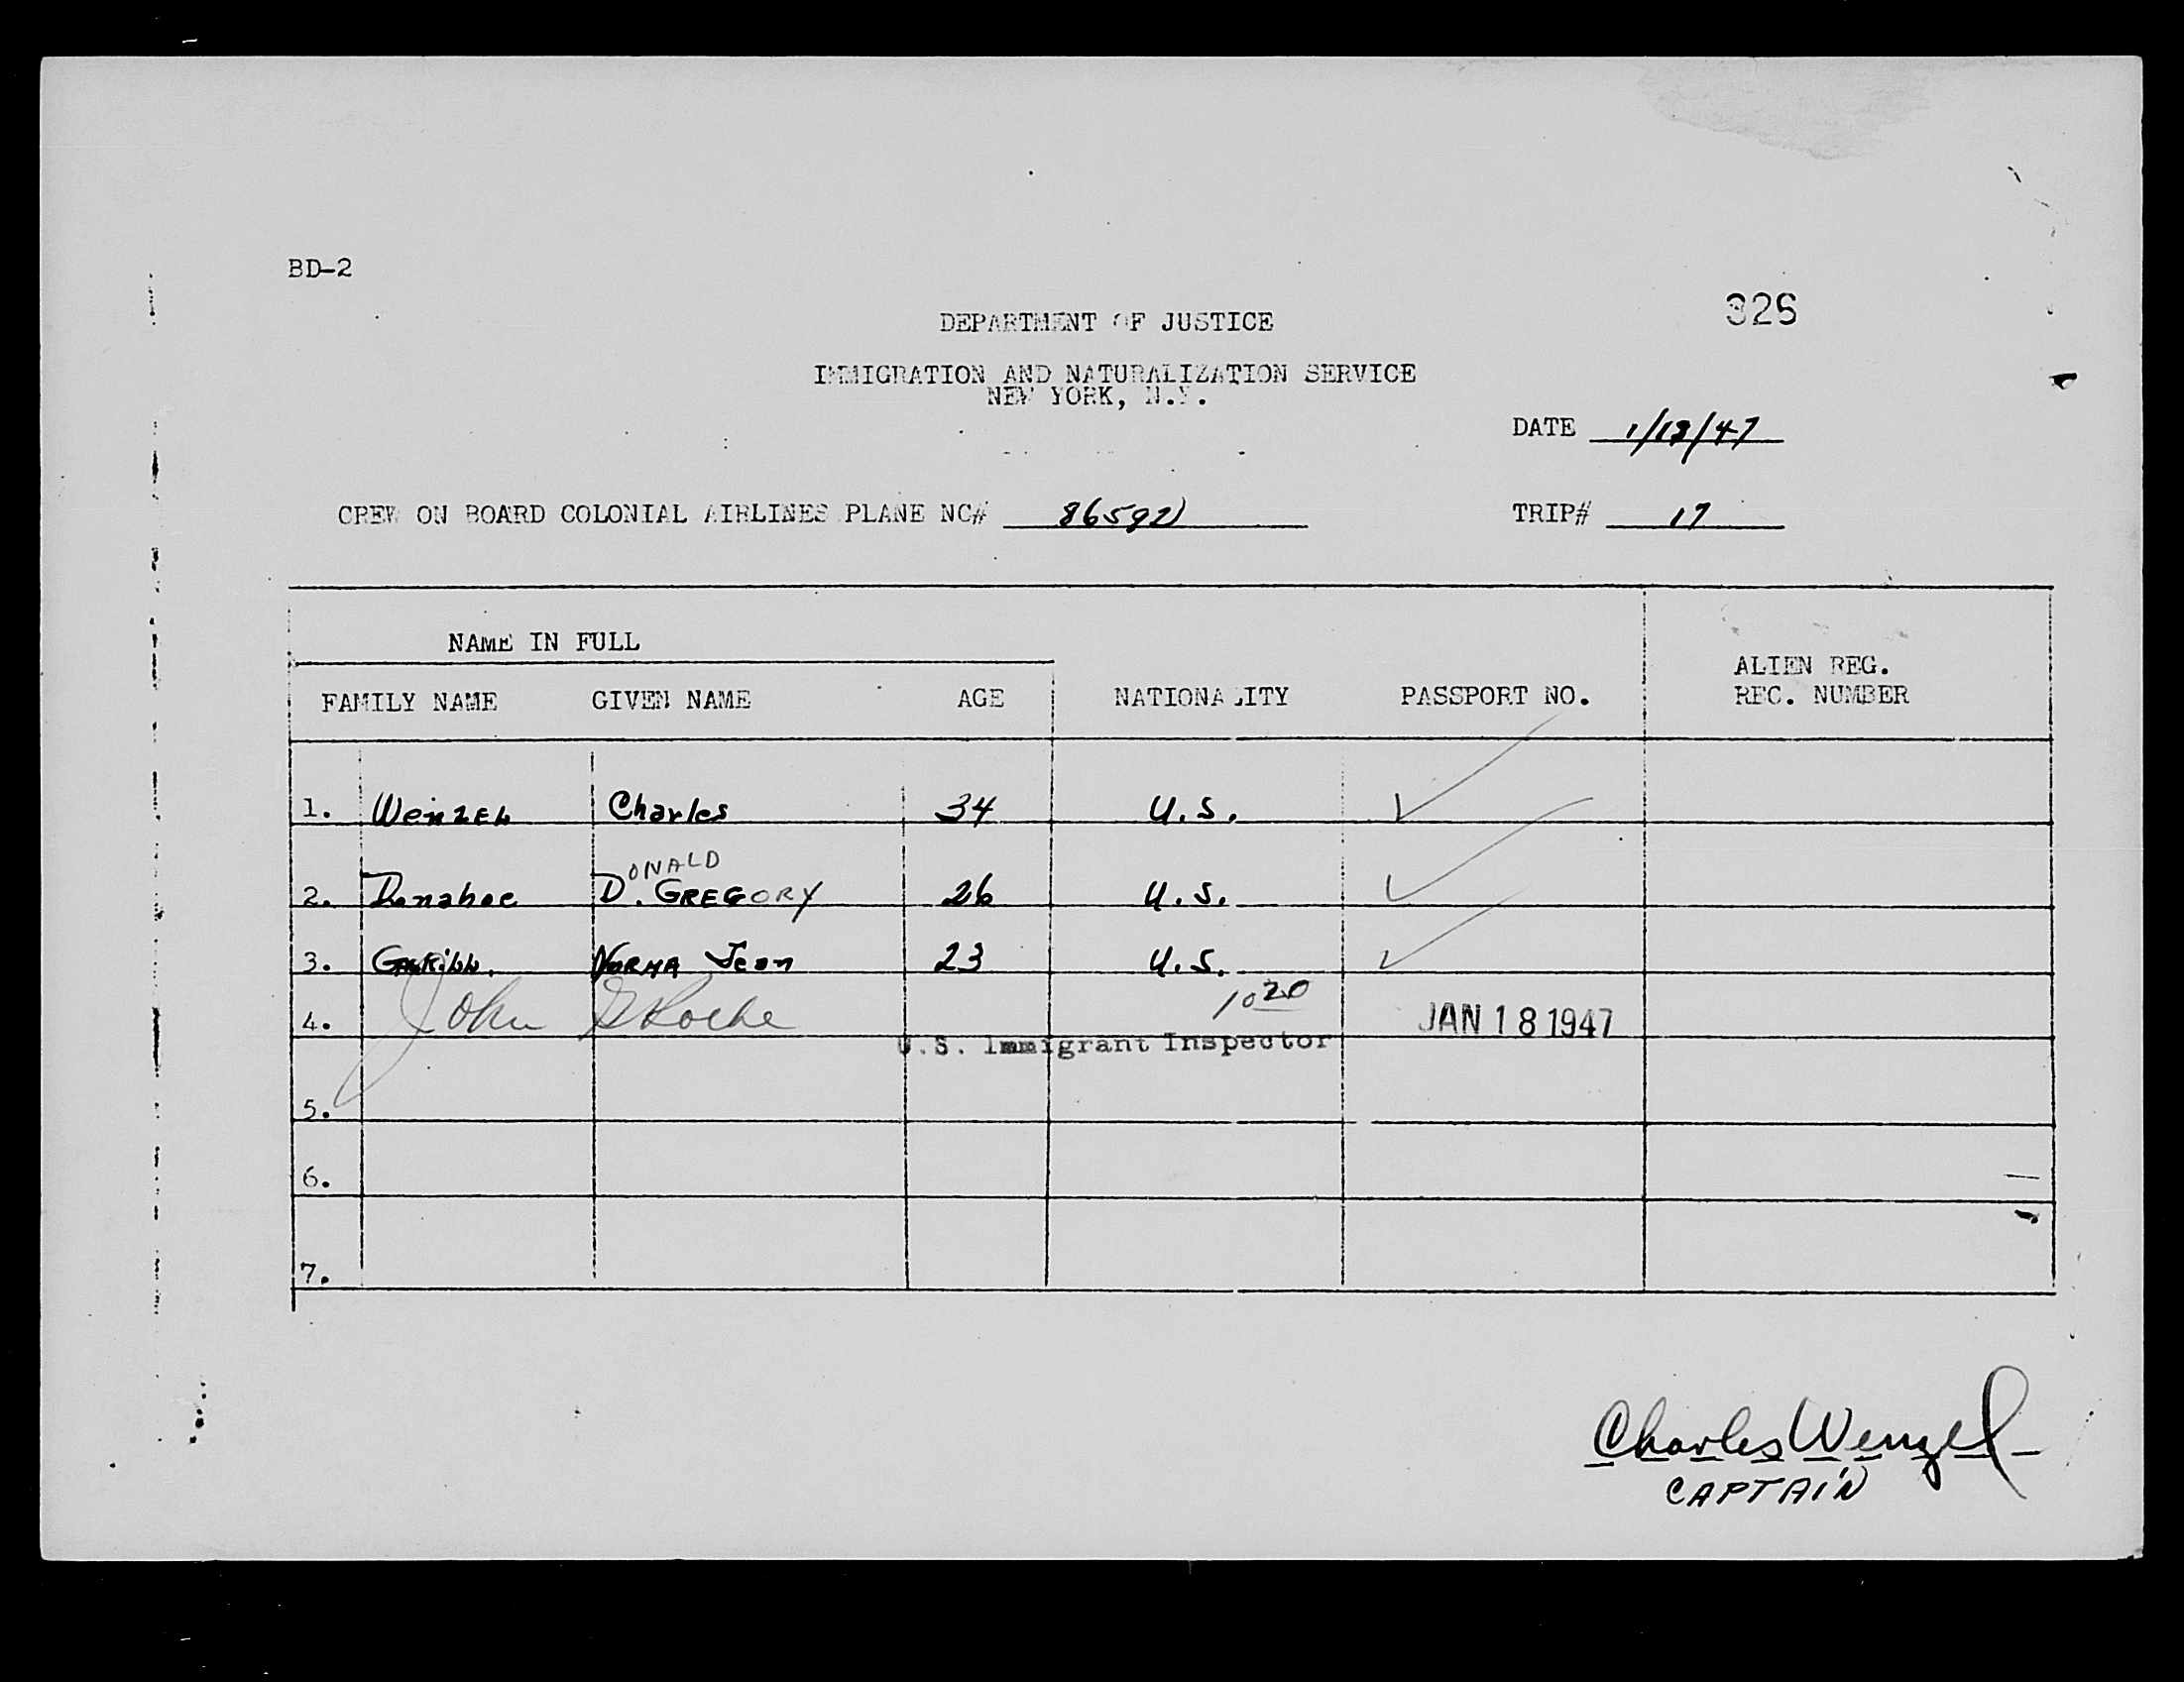 BD-2
326
DEPARTMENT OF JUSTICE
IMMIGRATION AND NATURALIZATION SERVICE
NEW YORK, N.Y.
DATE 1/18/47
CREW ON BOARD COLONIAL AIRLINES PLANE NC# 86592
TRIP# 17
NAME IN FULL
FAMILY NAME GIVEN NAME AGE NATIONALITY PASSPORT NO. ALIEN REG. REC. NUMBER
1. Wenzel Charles 34 U.S.
2. Donahoe D.ONALD GREGORY 26 U.S.
3. NORMA Jean 23 U.S.
1020
4. John Roche JAN 18 1947
U.S. Immigrant Inspector
5.
6.
7.
Charles Wenzel
CAPTAIN